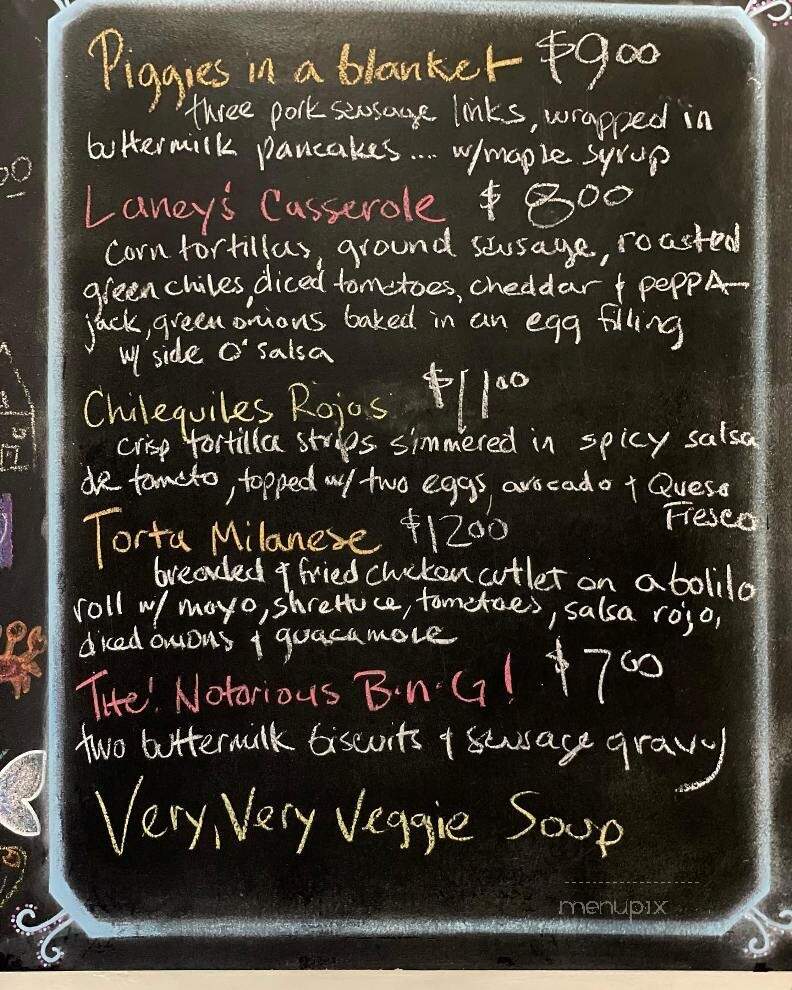 Piggies in a blanket $9.00
three pork sausage links, wrapped in
buttermilk pancakes .... w/maple syrup
Laney's Casserole $8.00
corn tortillas, ground sausage, roasted
green chiles, diced tomatoes, cheddar & pepper
jack, green onions baked in an egg filling
w/ side o' salsa
Chilequiles Rojos $11.00
crisp tortilla strips simmered in spicy salsa
de tomato, topped w/ two eggs, avocado & Queso
Fresco
Torta Milanese $12.00
breaded & fried chicken cutlet on a bolilo
roll w/ mayo, shrettuce, tomatoes, salsa rojo,
diced onions & guacamole
The! Notorious B.n.G! $7.00
two buttermilk biscuits & sausage gravy
Very, Very Veggie Soup
menupix